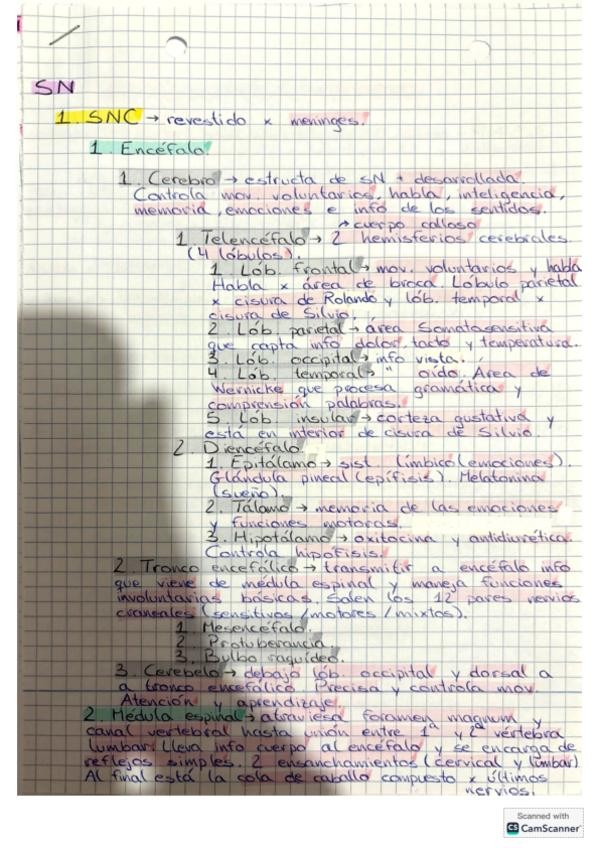 SN
1. SNC → revestido x meninges.
1. Encéfalo.
1. Cerebro → estructa de SN + desarrollada.
Controla mov. voluntarios, habla, inteligencia,
memoria, emociones e info de los sentidos.
↗ cuerpo calloso
1. Telencéfalo → 2 hemisferios cerebrales
(4 lóbulos).
1. Lób. frontal → mov. voluntarios y habla
Habla x área de broca. Lóbulo parietal
x cisura de Rolando y lób. temporal x
cisura de Silvio.
2. Lób. parietal → área Somatosensitiva
que capta info dolor, tacto y temperatura.
3. Lób. occipital → info vista.
4 Lób. temporal → " oído. Area de
Wernicke que procesa gramática y
comprensión palabras.
5. Lób insular → corteza gustativa y
está en interior de cisura de Silvio.
2. Diencéfalo.
1. Epitálamo → sist. límbico (emociones).
Glándula pineal (epífisis). Melatonina
(sueño).
2. Tálamo → memoria de las emociones
y funciones motoras.
3. Hipotálamo → oxitocina y antidiurética
Controla hipófisis.
2. Tronco encefálico → transmitir a encéfalo info
que viene de médula espinal y maneja funciones
involuntarias básicas. Salen los 12 pares nervios
craneales (sensitivos / motores / mixtos).
1. Mesencéfalo.
2. Protuberancia
3. Bulbo raquídeo.
3. Cerebelo → debajo lób. occipital y dorsal a
a tronco encefálico Precisa y controla mov.
Atención y aprendizaje
2. Médula espinal → atraviesa foramen magnum y
canal vertebral hasta unión entre 1ª y 2ª vértebra
lumbar. Lleva info cuerpo al encéfalo y se encarga de
reflejos simples. 2 ensanchamientos (cervical y lumbar)
Al final está la cola de caballo compuesto x últimos
nervios.
Scanned with
CS CamScanner